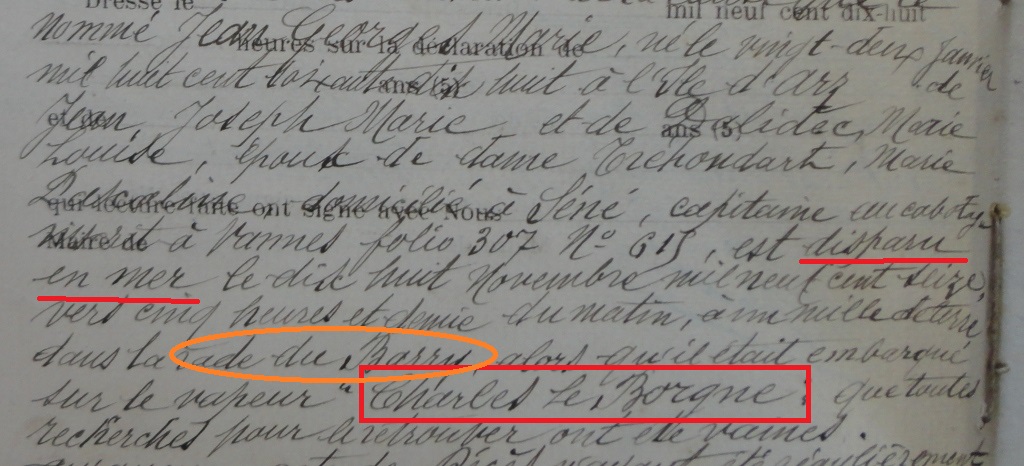 Dressé le
mil neuf cent dix-huit
nommé Jean Georges Marie, né le vingt-deux Janvier
heures sur la déclaration de
mil huit cent soixante dix huit à l'Ile d'Arz de
ans (5)
Jean, Joseph Marie, et de Dalidec, Marie
et de
ans (5)
Louise, époux de dame Tréhondart, Marie
Pascaline, domicilié à Séné, capitaine au cabotage
qui lecture faite ont signé avec Nous
inscrit à Vannes folio 307 N° 615, est disparu
Maire de
en mer le dix huit Novembre mil neuf cent seize,
vers cinq heures et demie du matin, à un mille de terre
dans la rade du Barry, alors qu'il était embarqué
sur le vapeur "Charles Le Borgne", que toutes
recherches pour le retrouver ont été vaines.
régulièrement